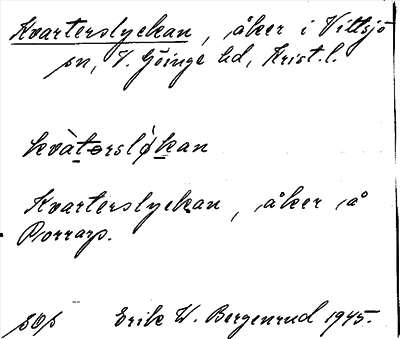 Kvarterslyckan, åker i Vittsjö
sn, V. Göinge hd, Krist. l.
kvàtərslỳkan
Kvarterslyckan, åker å
Porrarp.
Erik W. Bergenrud 1945.